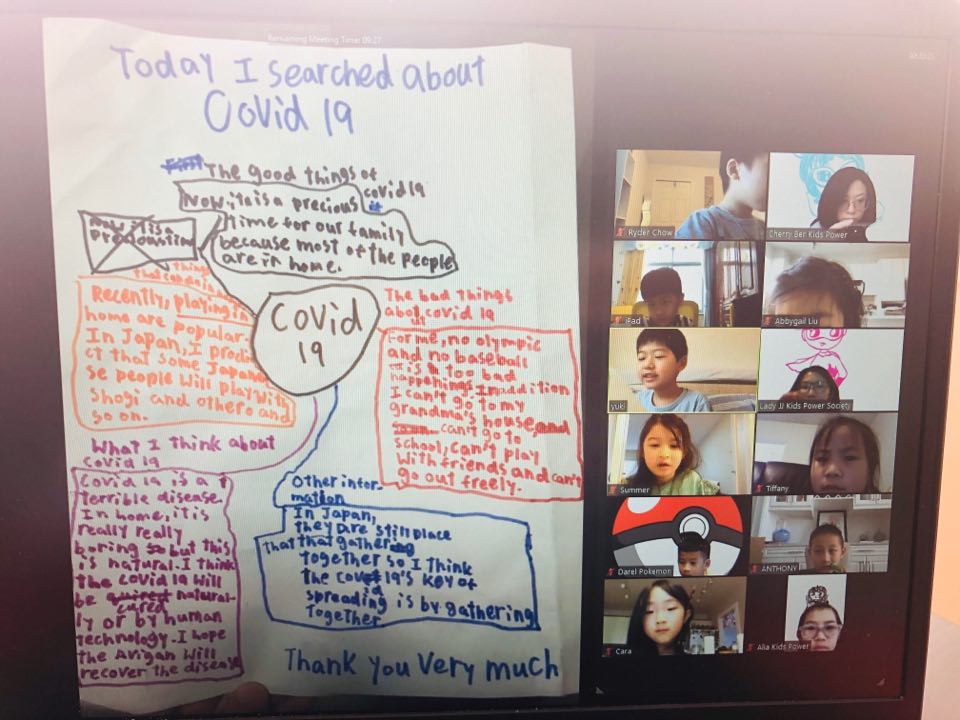 Remaining Meeting Time: 09:27
Today I searched about
Covid 19
The good things of
covid 19
Now, it is a precious
time for our family
because most of the people
are in home.
Now it is a
things
that can do in
Recently, playing in
home are popular.
In Japan, I predi
ct that some Japane
se people will play with
Shogi and others and
so on.
Covid
19
The bad things
about covid 19
For me, no olympic
and no baseball
is a too bad
happenings. In addition
I can't go to my
grandma's house, and
can't go to
school, can't play
with friends and can't
go out freely.
What I think about
Covid 19
Covid 19 is a t
terrible disease.
In home, it is
really really
boring so but this
is natural. I think
the covid 19 will
be cured natural-
ly or by human
technology. I hope
the Avigan will
recover the disease
Other infor-
mation
In Japan,
they are still place
that that gathering
together so I think
the covid 19's key of
spreading is by gathering
together
Thank you very much
Ryder Chow
Cherry Ber Kids Power
iPad
Abbygail Liu
yuki
Lady JJ Kids Power Society
Summer
Tiffany
Darel Pokemon
ANTHONY
Cara
Alia Kids Power